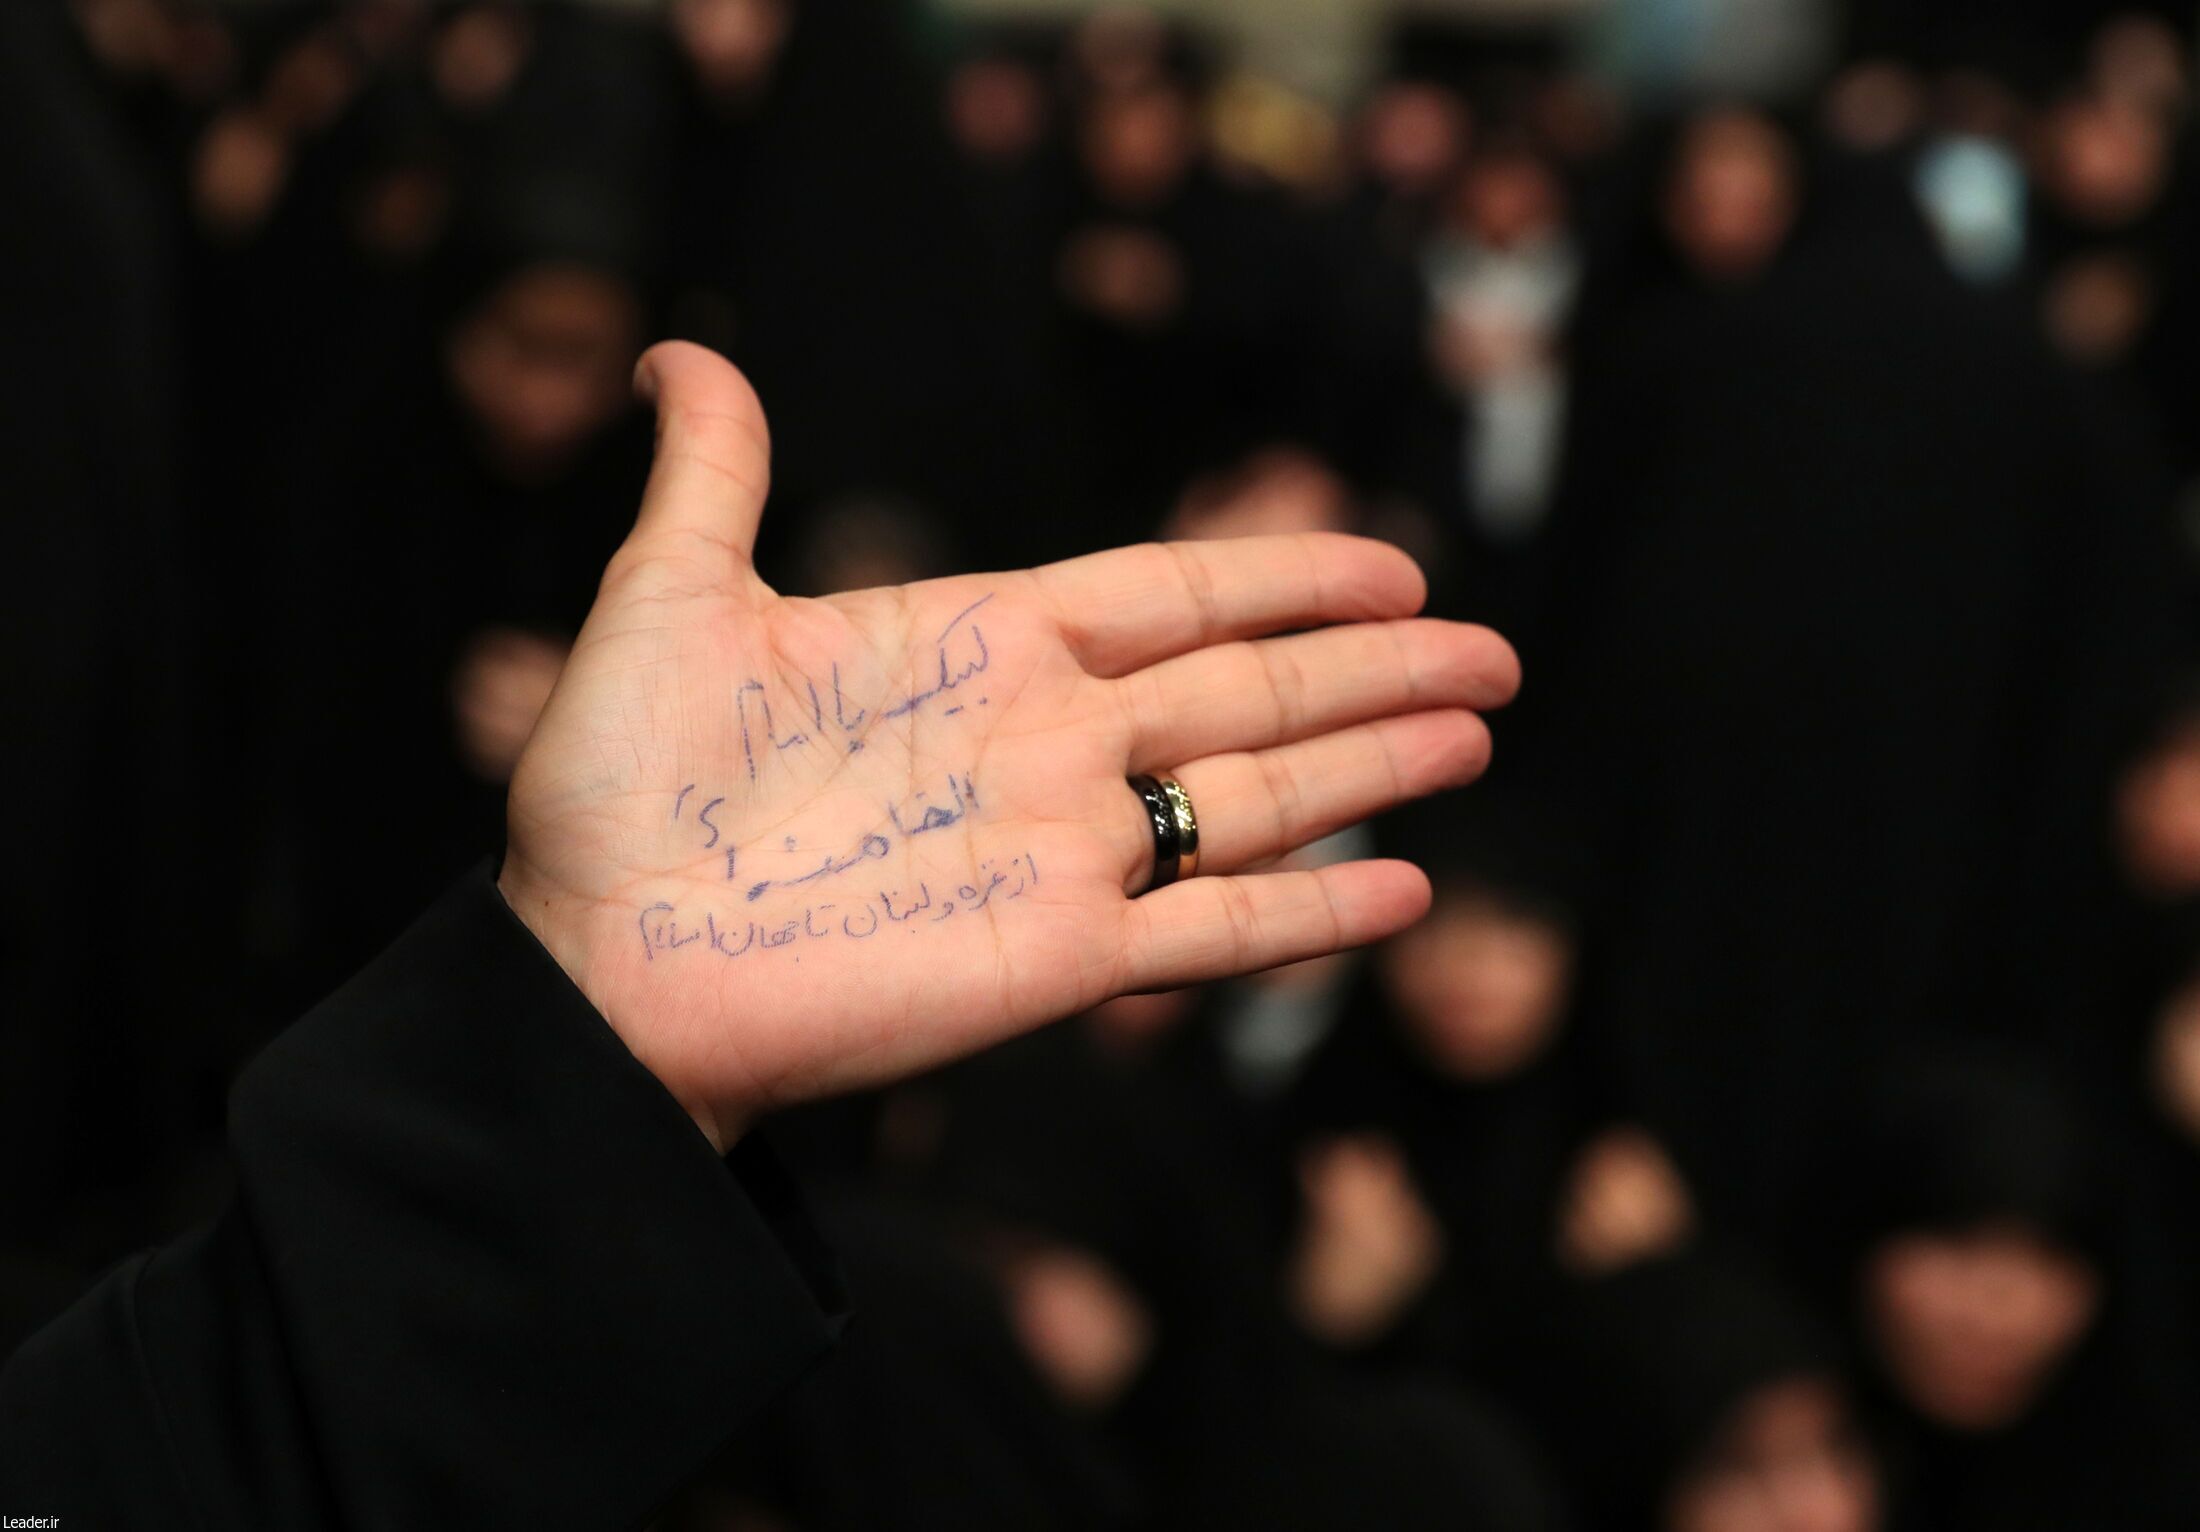 لبیک یا امام
الخامنه‌ای
از غزه و لبنان تا جهان اسلام
Leader.ir